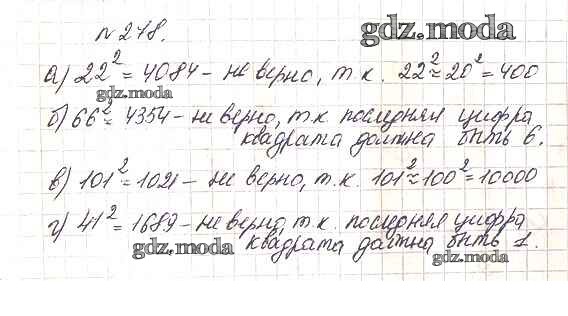 № 248.
gdz.moda
а) 22² = 4084 - не верно, т.к. 22² ≈ 20² = 400
gdz.moda
б) 66² = 4354 - не верно, т.к. последняя цифра
квадрата должна быть 6.
в) 101² = 1021 - не верно, т.к. 101² ≈ 100² = 10000
г) 41² = 1689 - не верно, т.к. последняя цифра
квадрата должна быть 1.
gdz.moda
gdz.moda